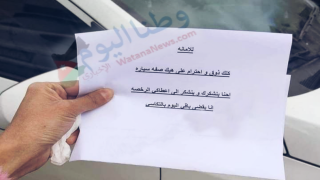 وطنا اليوم
WatanaNews.com
للامانه
كلك ذوق و احترام على هيك صفه سياره
احنا بنشكرك و بنشكر الي اعطاكي الرخصه
انا بقضي باقي اليوم بالتكاسي